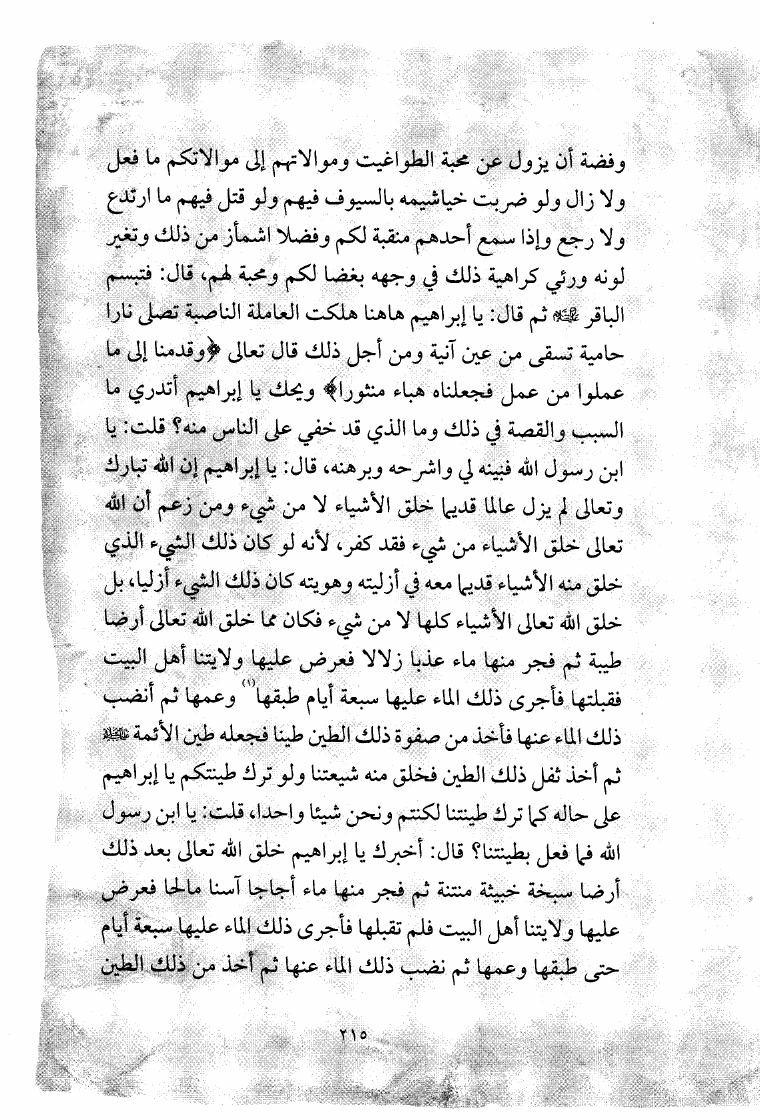 وفضة أن يزول عن محبة الطواغيت وموالاتهم إلى موالاتكم ما فعل
ولا زال ولو ضربت خياشيمه بالسيوف فيهم ولو قتل فيهم ما ارتدع
ولا رجع وإذا سمع أحدهم منقبة لكم وفضلا اشمأز من ذلك وتغير
لونه ورئي كراهية ذلك في وجهه بغضا لكم ومحبة لهم، قال: فتبسم
الباقر ﷺ ثم قال: يا إبراهيم هاهنا هلكت العاملة الناصبة تصلى نارا
حامية تسقى من عين آنية ومن أجل ذلك قال تعالى ﴿وقدمنا إلى ما
عملوا من عمل فجعلناه هباء منثورا﴾ ويحك يا إبراهيم أتدري ما
السبب والقصة في ذلك وما الذي قد خفي على الناس منه؟ قلت: يا
ابن رسول الله فبينه لي واشرحه وبرهنه، قال: يا إبراهيم إن الله تبارك
وتعالى لم يزل عالما قديما خلق الأشياء لا من شيء ومن زعم أن الله
تعالى خلق الأشياء من شيء فقد كفر، لأنه لو كان ذلك الشيء الذي
خلق منه الأشياء قديما معه في أزليته وهويته كان ذلك الشيء أزليا، بل
خلق الله تعالى الأشياء كلها لا من شيء فكان مما خلق الله تعالى أرضا
طيبة ثم فجر منها ماء عذبا زلالا فعرض عليها ولايتنا أهل البيت
فقبلتها فأجرى ذلك الماء عليها سبعة أيام طبقها(١) وعمها ثم أنضب
ذلك الماء عنها فأخذ من صفوة ذلك الطين طينا فجعله طين الأئمة ﷺ
ثم أخذ ثفل ذلك الطين فخلق منه شيعتنا ولو ترك طينتكم يا إبراهيم
على حاله كما ترك طينتنا لكنتم ونحن شيئا واحدا، قلت: يا ابن رسول
الله فما فعل بطينتنا؟ قال: أخبرك يا إبراهيم خلق الله تعالى بعد ذلك
أرضا سبخة خبيثة منتنة ثم فجر منها ماء أجاجا آسنا مالحا فعرض
عليها ولايتنا أهل البيت فلم تقبلها فأجرى ذلك الماء عليها سبعة أيام
حتى طبقها وعمها ثم نضب ذلك الماء عنها ثم أخذ من ذلك الطين
٢١٥